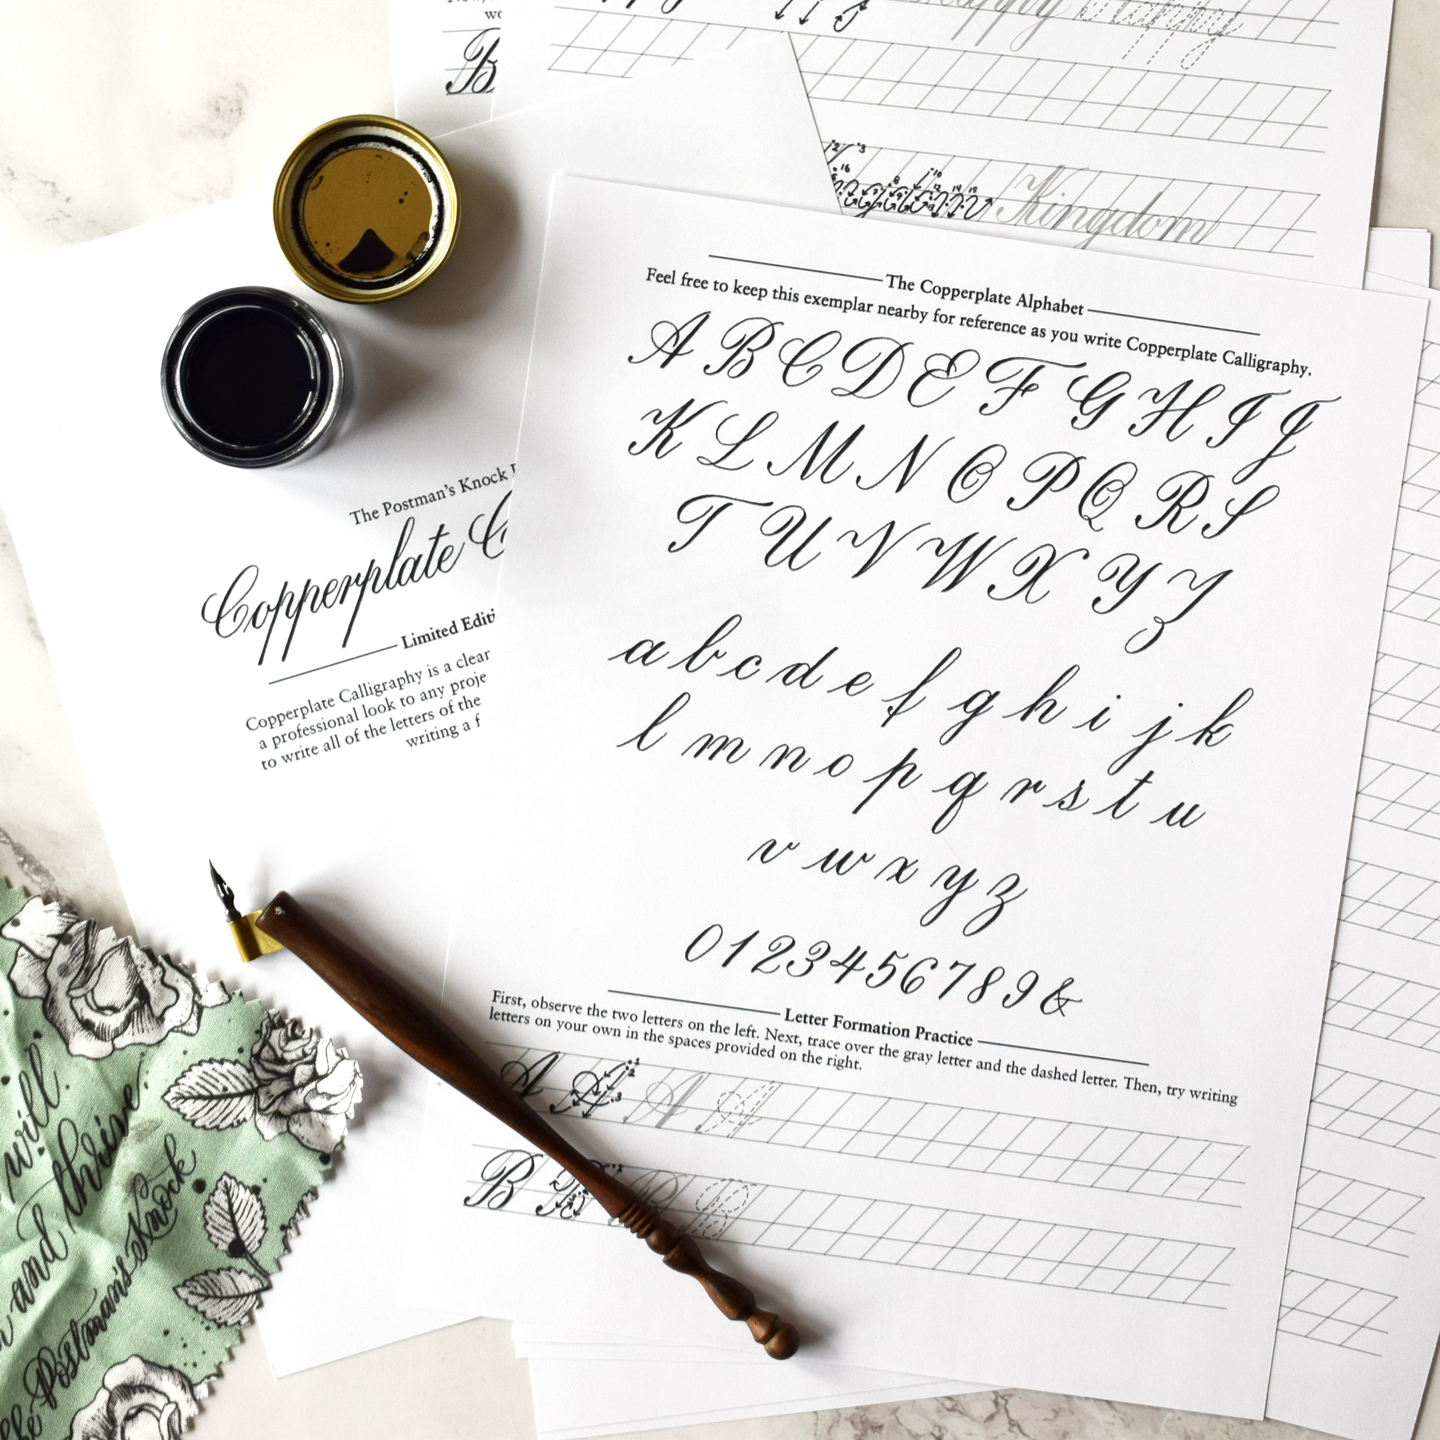 B
Happy Happy
Kingdom
The Copperplate Alphabet
Feel free to keep this exemplar nearby for reference as you write Copperplate Calligraphy.
A B C D E F G H I J
K L M N O P Q R S
T U V W X Y Z
a b c d e f g h i j k
l m n o p q r s t u
v w x y z
0 1 2 3 4 5 6 7 8 9 &
Letter Formation Practice
First, observe the two letters on the left. Next, trace over the gray letter and the dashed letter. Then, try writing
letters on your own in the spaces provided on the right.
A A A A
B B B B
The Postman's Knock
Copperplate C
Limited Editi
Copperplate Calligraphy is a clear
a professional look to any proje
to write all of the letters of the
writing a f
will
and thrive
the Postman's Knock